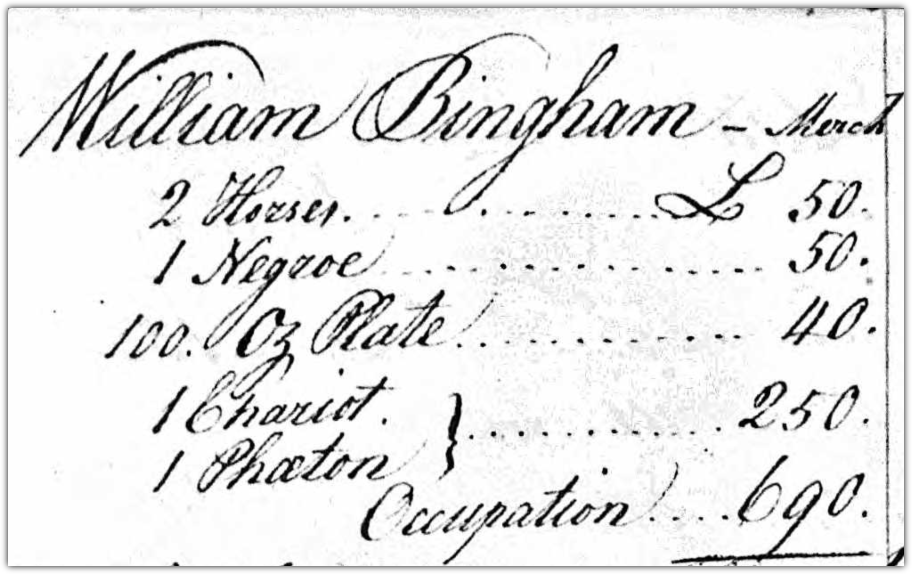 William Bingham - Merch
2 Horses. . . . . . . . . . . . . . . . . . £ 50.
1 Negroe . . . . . . . . . . . . . . . . . . 50.
100. Oz Plate . . . . . . . . . . . . . . 40.
1 Chariot. } . . . . . . . . . . . . . . . 250.
1 Phæton
Occupation . . . . 690.